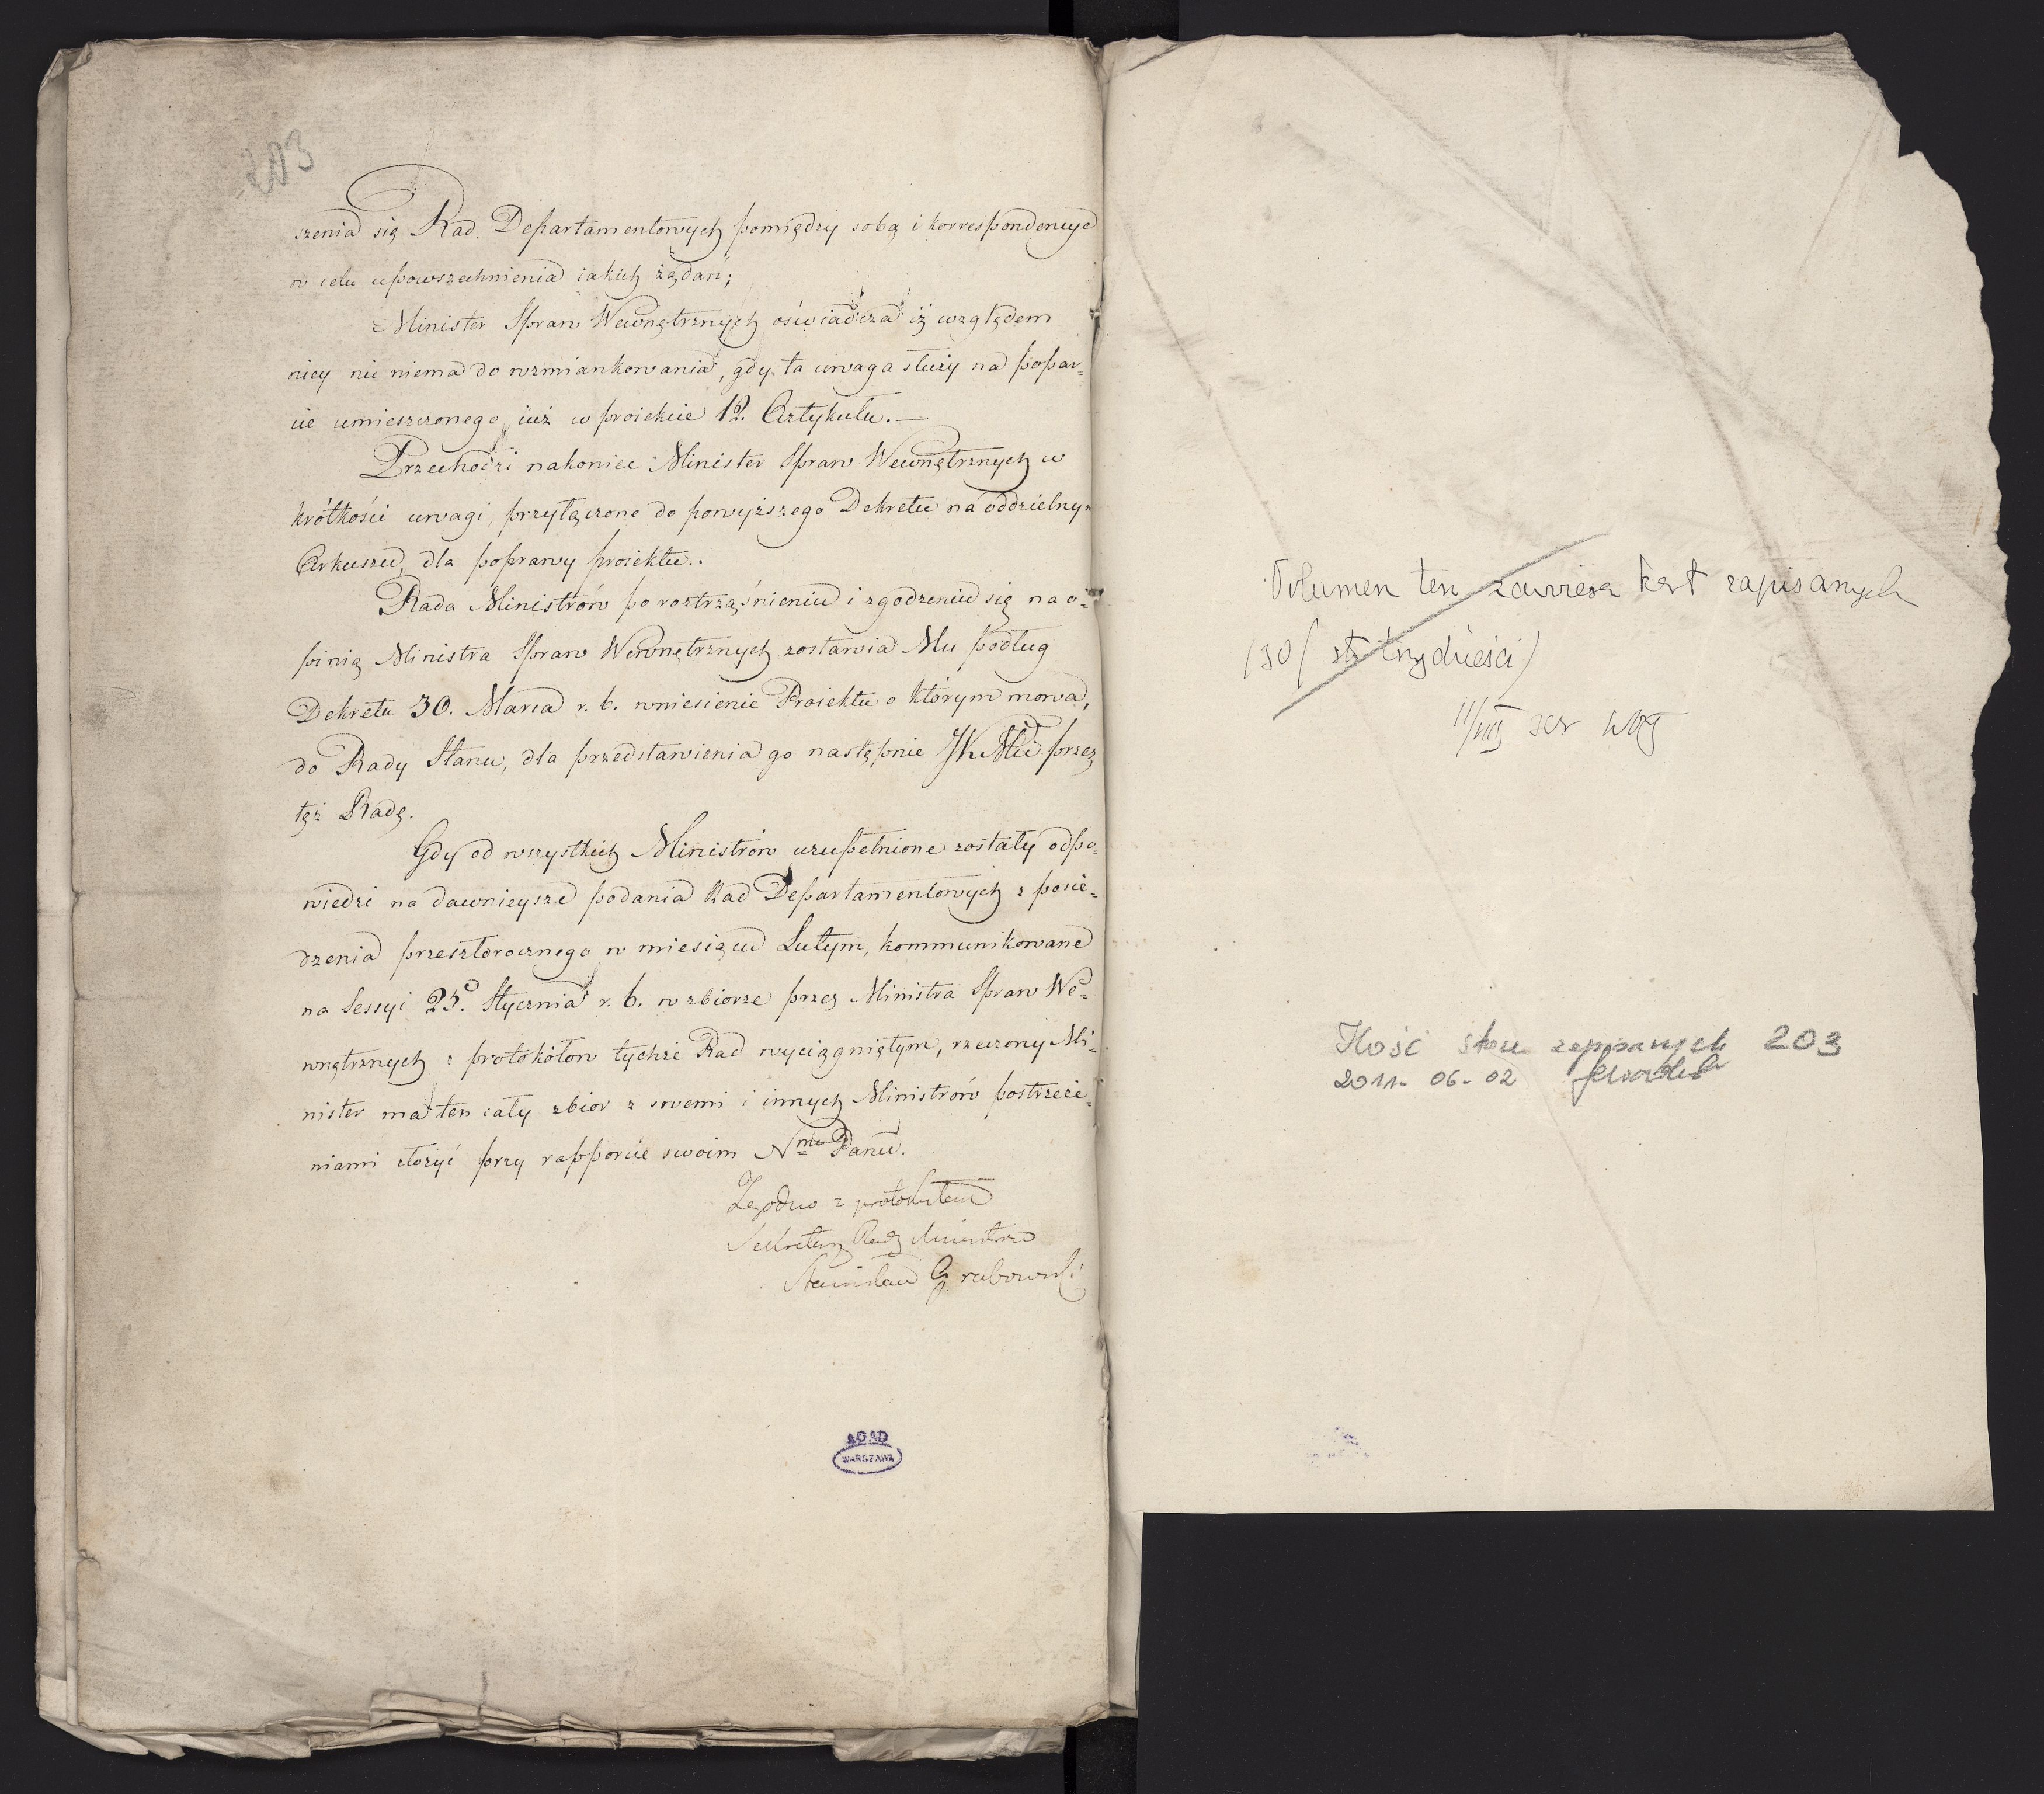 203
szenia się Rad Departamentowych pomiędzy sobą i korrespondencye
w celu upowszechnienia iakich żądań;
Minister Spraw Wewnętrznych oświadcza iż względem
niey nic niema do wzmiankowania, gdy ta uwaga służy na popar-
cie umieszczonego iuż w proiekcie 12. Artykułu.—
Przechodzi nakoniec Minister Spraw Wewnętrznych w
krótkości uwagi przyłączone do powyższego Dekretu na oddzielnym
Arkuszu, dla poprawy proiektu..
Rada Ministrów po roztrząśnieniu i zgodzeniu się na o-
pinią Ministra Spraw Wewnętrznych zostawia Mu podług
Dekretu 30. Marca r. b. wniesienie Proiektu o którym mowa,
do Rady Stanu, dla przedstawienia go następnie JKMci przez
tęż Radę.
Gdy od wszystkich Ministrów uzupełnione zostały odpo-
wiedzi na dawnieysze podania Rad Departamentowych z posie-
dzenia przeszłorocznego w miesiącu Lutym, kommunikowane
na Sessyi 25º. Stycznia r. b. w zbiorze przez Ministra Spraw We-
wnętrznych z protokółów tychże Rad wyciągniętym, rzeczony Mi-
nister ma ten cały zbior z swemi i innych Ministrów postrzeże-
niami złożyć przy rapporcie swoim Nmu Panu.
Zgodno z protokułem
Sekretarz Rady Ministrów
Stanisław Grabowski
AGAD
WARSZAWA
Volumen ten zawiera kart zapisanych
130 (sto trzydzieści)
Ilość stron zapisanych 203
2011-06-02